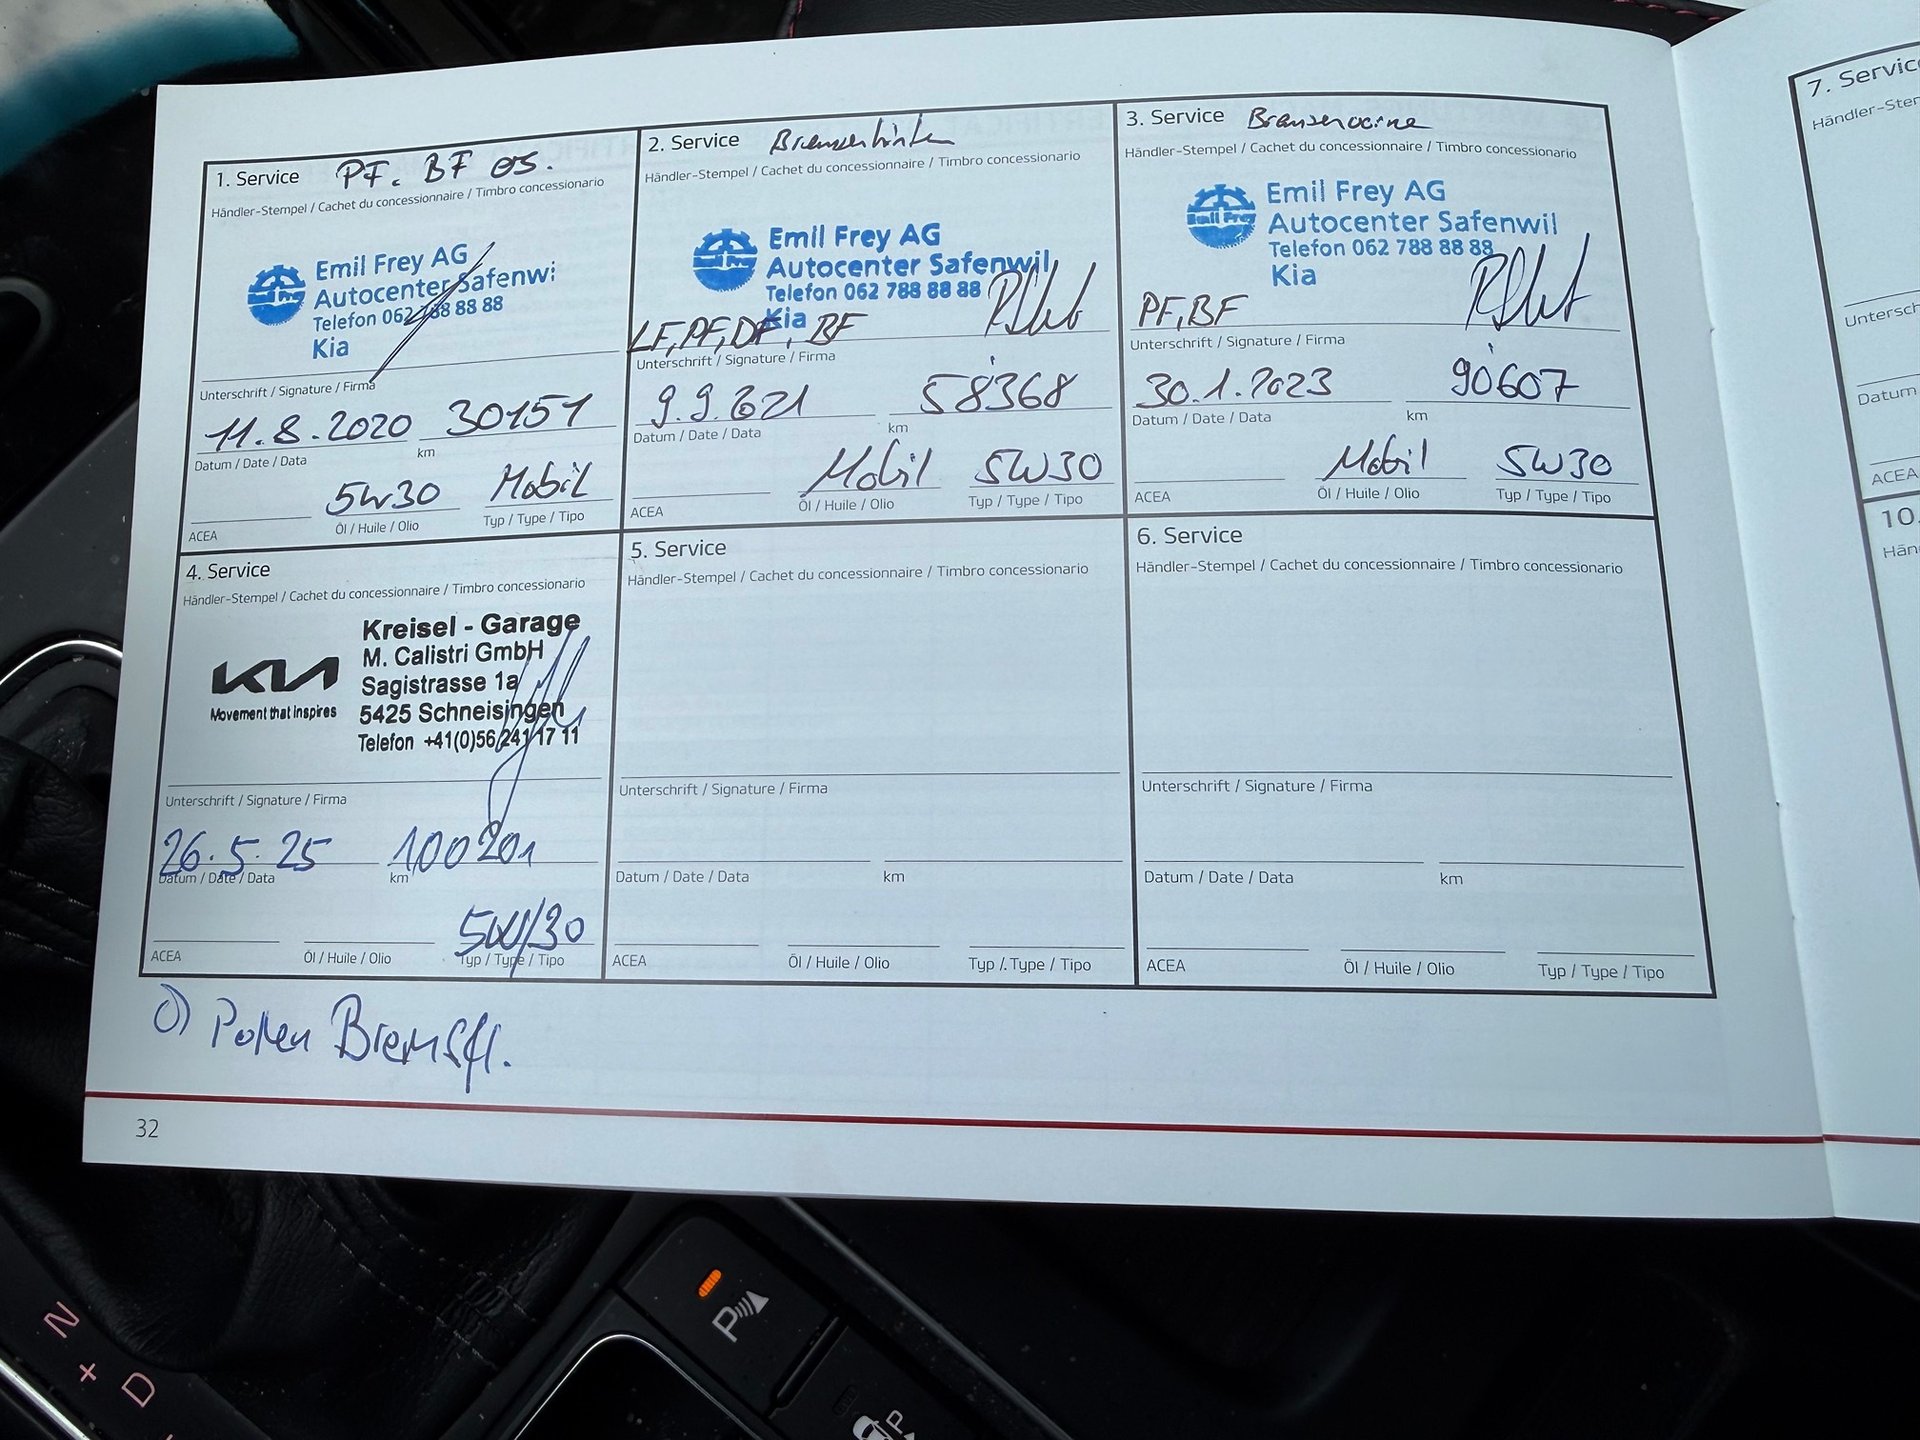 1. Service PF. BF os.
Händler-Stempel / Cachet du concessionnaire / Timbro concessionario
Emil Frey
Emil Frey AG
Autocenter Safenwi
Telefon 062 788 88 88
Kia
Unterschrift / Signature / Firma
11.8.2020 30151
Datum / Date / Data km
5W30 Mobil
ACEA Öl / Huile / Olio Typ / Type / Tipo
2. Service Bremsen hinten
Händler-Stempel / Cachet du concessionnaire / Timbro concessionario
Emil Frey
Emil Frey AG
Autocenter Safenwil
Telefon 062 788 88 88
Kia
LF, PF, DF, BF
Unterschrift / Signature / Firma
9.9.2021 58'368
Datum / Date / Data km
Mobil 5W30
ACEA Öl / Huile / Olio Typ / Type / Tipo
3. Service Bremsen vorne
Händler-Stempel / Cachet du concessionnaire / Timbro concessionario
Emil Frey
Emil Frey AG
Autocenter Safenwil
Telefon 062 788 88 88
Kia
PF, BF
Unterschrift / Signature / Firma
30.1.2023 90'607
Datum / Date / Data km
Mobil 5W30
ACEA Öl / Huile / Olio Typ / Type / Tipo
4. Service
Händler-Stempel / Cachet du concessionnaire / Timbro concessionario
KIA
Movement that inspires
Kreisel - Garage
M. Calistri GmbH
Sagistrasse 1a
5425 Schneisingen
Telefon +41(0)56 241 17 11
Unterschrift / Signature / Firma
26.5.25 100201
Datum / Date / Data km
5W/30
ACEA Öl / Huile / Olio Typ / Type / Tipo
5. Service
Händler-Stempel / Cachet du concessionnaire / Timbro concessionario
Unterschrift / Signature / Firma
Datum / Date / Data km
ACEA Öl / Huile / Olio Typ / Type / Tipo
6. Service
Händler-Stempel / Cachet du concessionnaire / Timbro concessionario
Unterschrift / Signature / Firma
Datum / Date / Data km
ACEA Öl / Huile / Olio Typ / Type / Tipo
Pollen Bremsfl.
32
7. Servic
Händler-Ste
Untersch
Datum
ACEA
10.
Hän
N
+
D
P
P